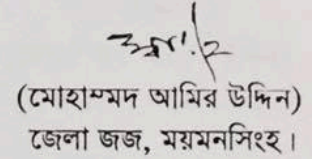 (মোহাম্মদ আমির উদ্দিন)
জেলা জজ, ময়মনসিংহ।